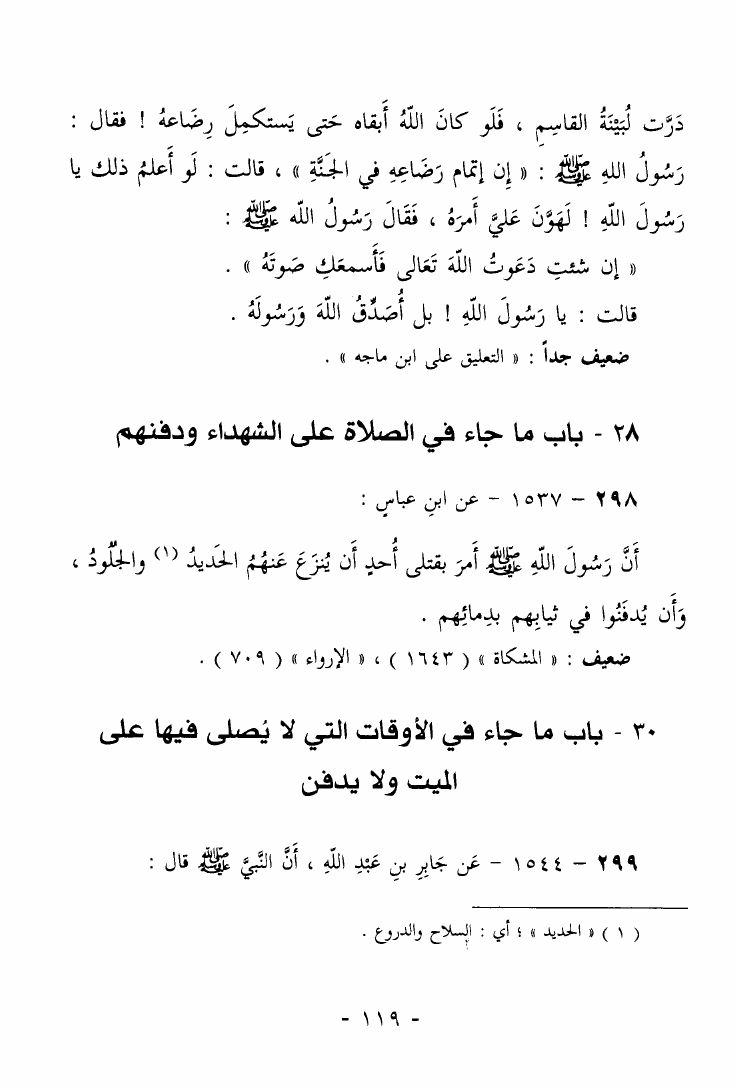 دَرَّت لُبَيْنَةُ القاسِمِ ، فَلَو كانَ اللَّهُ أَبقاه حَتى يَستكمِلَ رِضَاعهُ ! فقال :
رَسُولُ اللهِ ﷺ : « إِن إِتمام رَضَاعِهِ في الجَنَّةِ » ، قالت : لَو أَعلمُ ذلك يا
رَسُولَ اللَّهِ ! لَهَوَّنَ عَليَّ أَمرَهُ ، فَقَالَ رَسُولُ اللَّه ﷺ :
« إِن شئتِ دَعَوتُ اللَّهَ تَعَالى فَأَسمعَكِ صَوتَهُ » .
قالت : يا رَسُولَ اللَّهِ ! بل أُصَدِّقُ اللَّهَ وَرَسُولَهُ .
ضعيف جداً : « التعليق على ابن ماجه » .
٢٨ - باب ما جاء في الصلاة على الشهداء ودفنهم
٢٩٨ – ١٥٣٧ – عن ابنِ عباسٍ :
أَنَّ رَسُولَ اللَّهِ ﷺ أَمرَ بقتلى أُحدٍ أَن يُنزَعَ عَنهُمُ الحَديدُ (١) والجُلُودُ ،
وَأَن يُدفَنُوا في ثيابِهم بدِمائِهم .
ضعيف : « المشكاة » ( ١٦٤٣ ) ، « الإرواء » ( ٧٠٩ ) .
٣٠ - باب ما جاء في الأوقات التي لا يُصلى فيها على
الميت ولا يدفن
٢٩٩ – ١٥٤٤ – عَن جَابِرِ بنِ عَبْدِ اللَّهِ ، أَنَّ النَّبيَّ ﷺ قال :
( ١ ) « الحديد » ؛ أي : السلاح والدروع .
- ١١٩ -